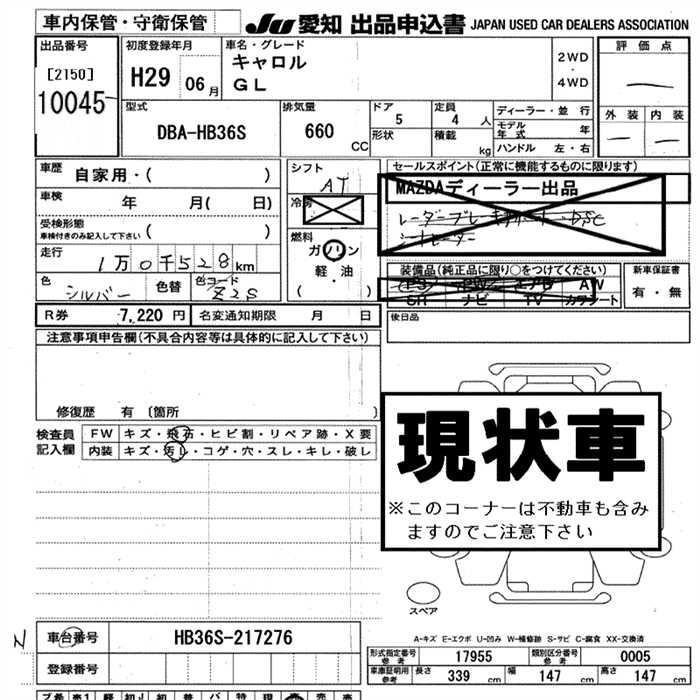 車内保管・守衛保管
JU 愛知 出品申込書 JAPAN USED CAR DEALERS ASSOCIATION
出品番号
[2150]
10045
初度登録年月
H29 06 月
車名・グレード
キャロル
GL
2WD
・
4WD
評価点
外装 内装
型式
DBA-HB36S
排気量
660 CC
ドア
5
形状
定員
4 人
積載
kg
ディーラー・並行
モデル年式 年
ハンドル 左・右
車歴
自家用・( )
車検
年 月( 日)
受検形態
車検付きのみ記入して下さい ( )
走行
1万0千528km
色
シルバー
色替
色コード
Z2S
シフト
AT
冷房
燃料
ガソリン
軽・油
( )
セールスポイント(正常に機能するものに限ります)
MAZDAディーラー出品
レーダーブレーキサポート DSC
シートヒーター
装備品(純正品に限り○をつけてください)
PS PW エアB AW
SR ナビ TV カワシート
新車保証書
有・無
R券 7,220 円
名変通知期限 月 日
後日品
注意事項申告欄(不具合内容等は具体的に記入して下さい)
修復歴 有〔箇所 〕
検査員記入欄
FW キズ・飛石・ヒビ割・リペア跡・X要
内装 キズ・汚レ・コゲ・穴・スレ・キレ・破レ
現状車
※このコーナーは不動車も含み
ますのでご注意下さい
スペア
A-キズ E-エクボ U-凹み W-補修跡 S-サビ C-腐食 XX-交換済
N
車台番号 HB36S-217276
登録番号
形式指定番号
参考
17955
類別区分番号
参考
0005
車庫証明用
参考
長さ 339 cm 幅 147 cm 高さ 147 cm